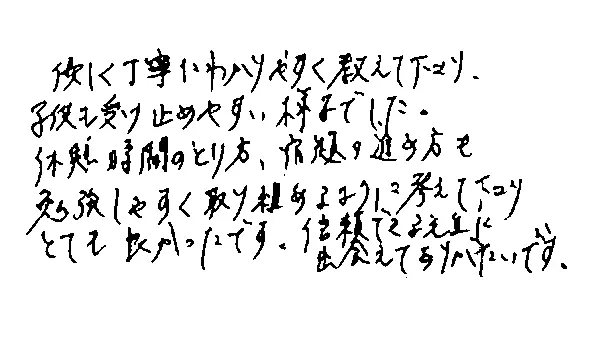 優しく丁寧にわかりやすく教えて下さり、
子供も受け止めやすい様子でした。
休憩時間のとり方、宿題の進め方も
勉強しやすく取り組めるように考えて下さり
とても良かったです。信頼できる先生に
出会えてありがたいです。